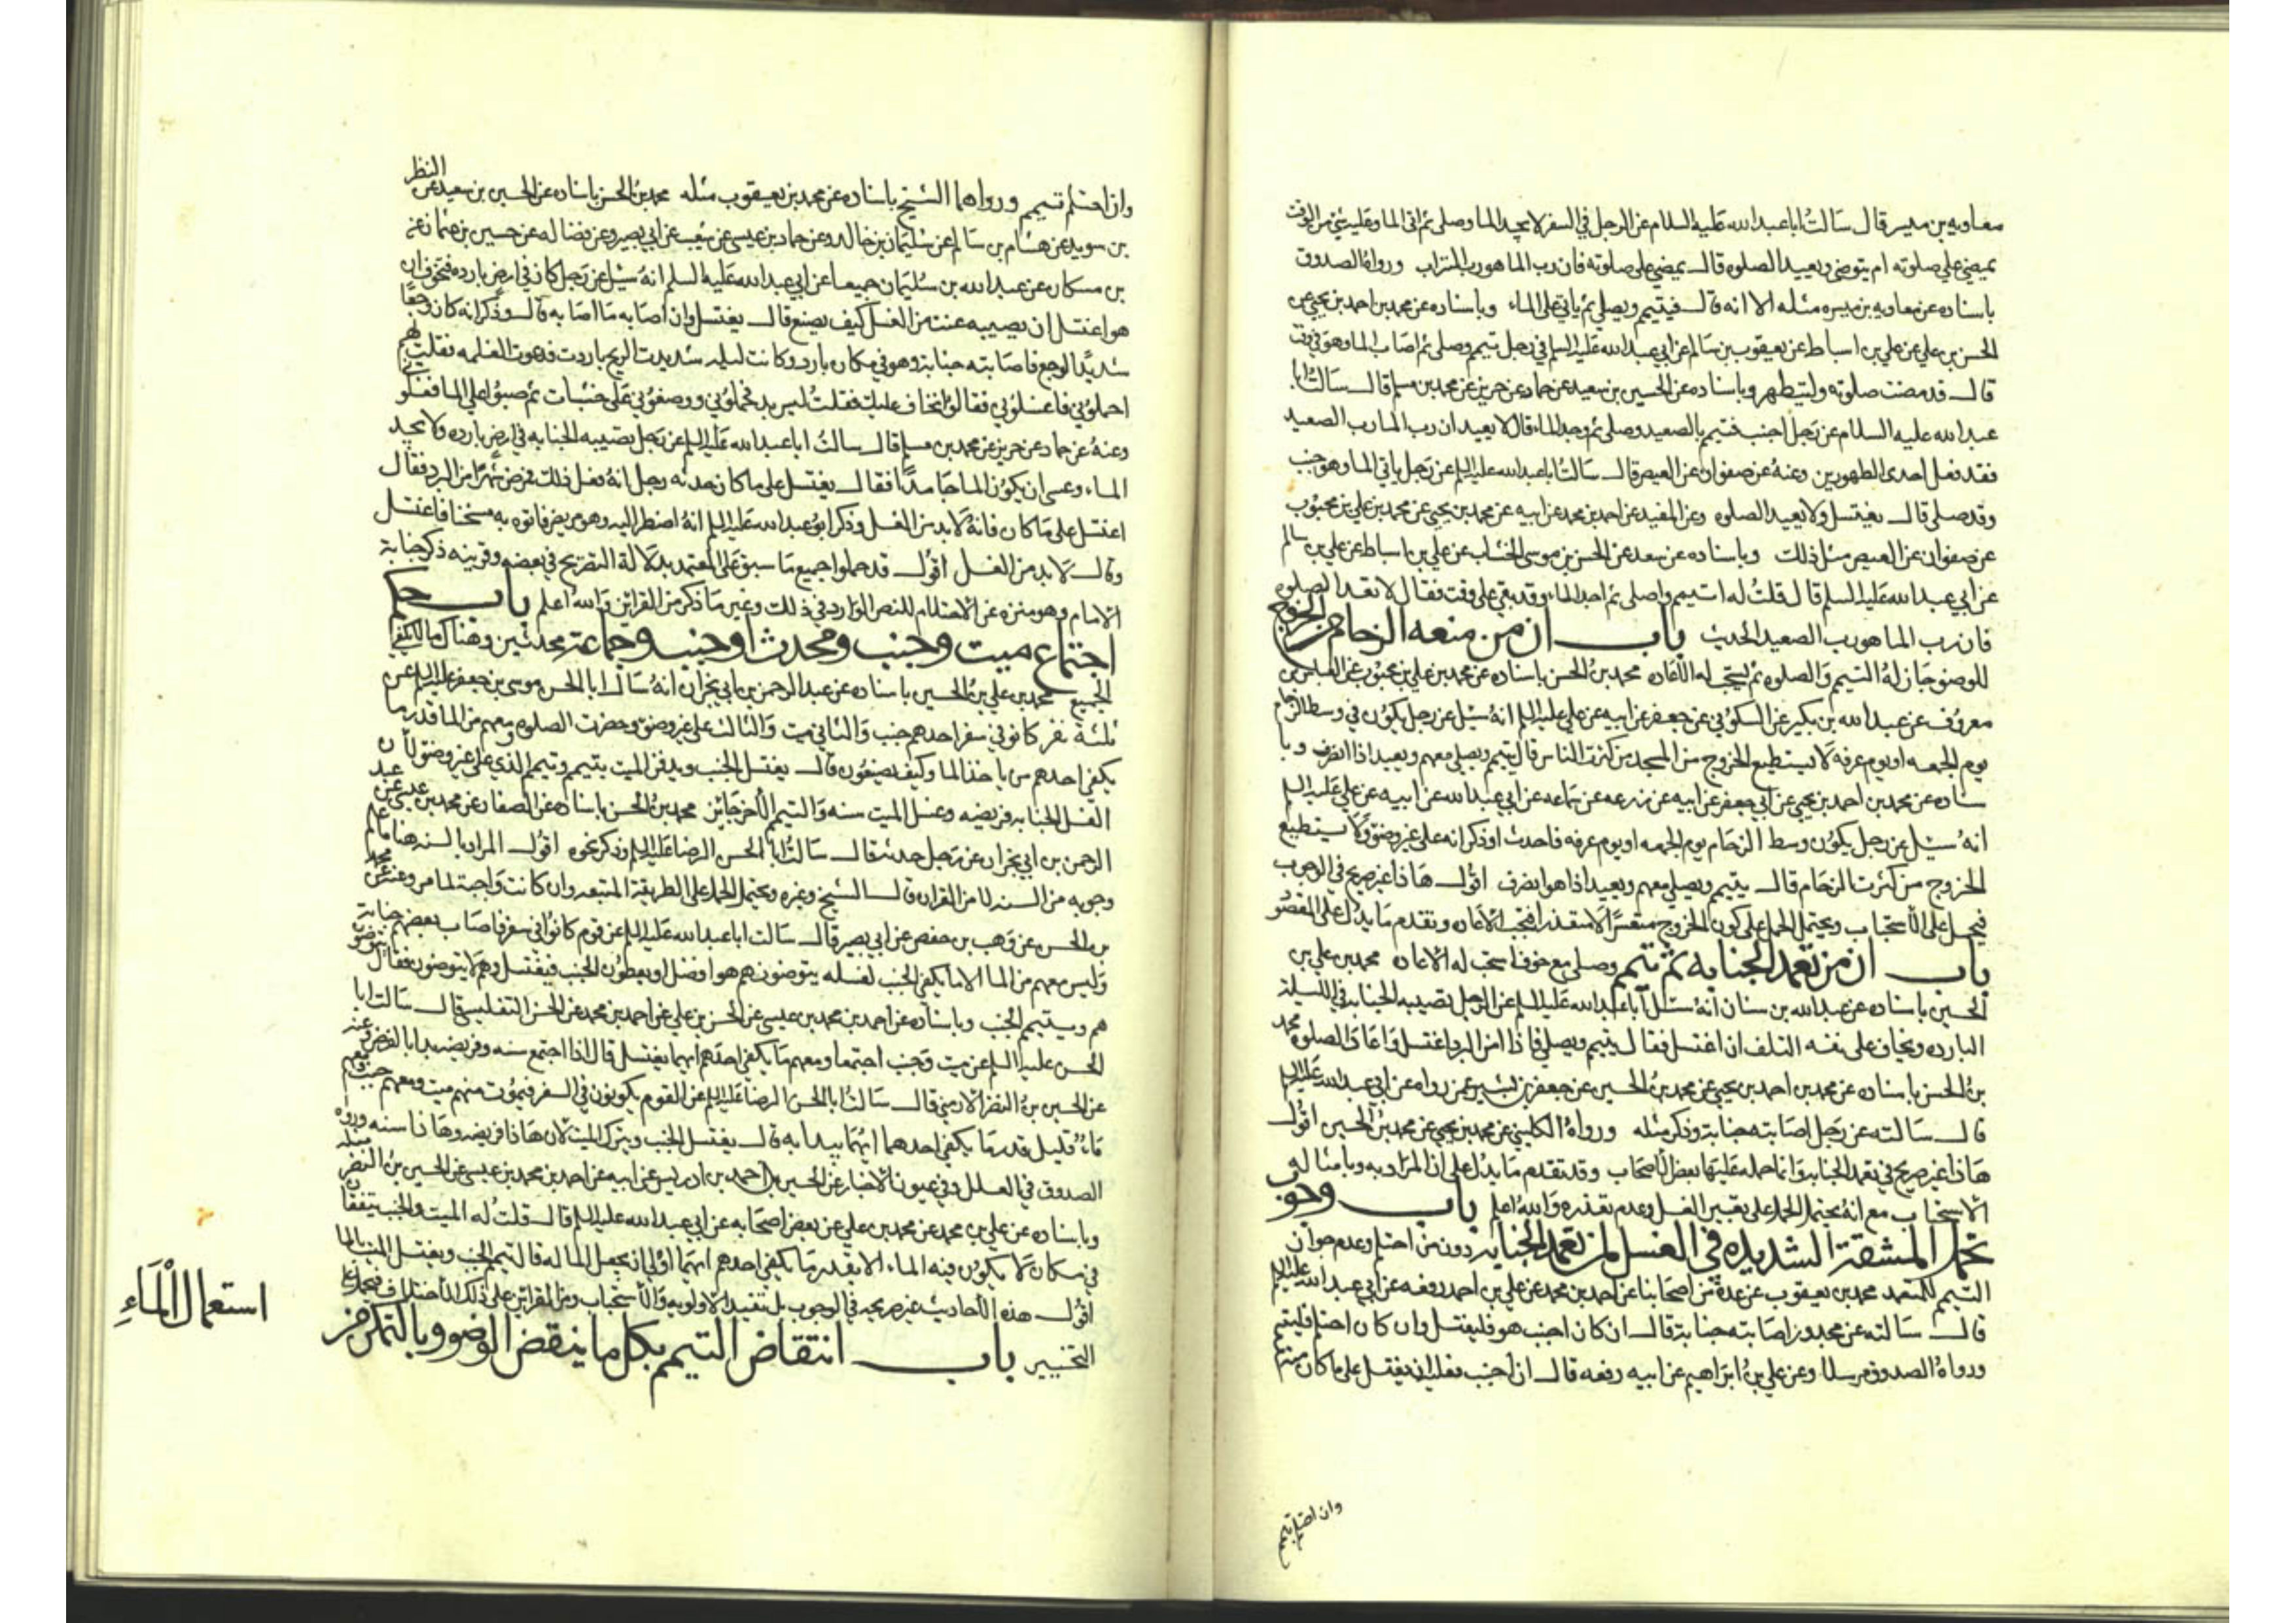 معاويه بن ميسر قال سالتُ ابا عبد الله عليه السلام عن الرجل في السفر لا يجد الما وصلى ثم اتى الما وعليه شئ من الوقت
يمضي على صلوته ام يتوضى ويعيد الصلوه قال يمضي على صلوته فان رب الما هو رب التراب ورواه الصدوق
باسناده عن معاويه بن ميسره مثله الا انه قال فيتيمم ويصلي ثم ياتي على الماء وباسناده عن محمد بن احمد بن يحيى عن
الحسن بن علي عن علي بن اسباط عن يعقوب بن سالم عن ابي عبد الله عليه السلم في رجل تيمم وصلى ثم اصاب الما وهو في وقت
قال قد مضت صلوته وليتطهر وباسناده عن الحسين بن سعيد عن حماد عن حريز عن محمد بن مسلم قال سالتُ ابا
عبد الله عليه السلام عن رجل اجنب فتيمم بالصعيد وصلى ثم وجد الماء قال لا يعيد ان رب الما رب الصعيد
فقد فعل احدى الطهورين وعنهُ عن صفوان عن العيص قال سالتُ ابا عبد الله عليه السلم عن رجل ياتي الما وهو جنب
وقد صلى قال يغتسل ولا يعيد الصلوه وعن المفيد عن احمد بن محمد عن ابيه عن محمد بن يحيى عن محمد بن علي بن محبوب
عن صفوان عن العيص مثل ذلك وباسناده عن سعد عن الحسن بن موسى الخشاب عن علي بن اسباط عن علي بن سالم
عن ابي عبد الله عليه السلم قال قلتُ له اتيمم واصلي ثم اجد الماء وقد بقي على وقت فقال لا تعد الصلوه
فان رب الما هو رب الصعيد الحديث باب ان من منعه الزحام من الخروج
للوضو جاز لهُ التيمم والصلوه ثم يستحب له الاعاده محمد بنُ الحسن باسناده عن محمد بن علي بن محبوب عن العباس بن
معروف عن عبد الله بن بكير عن السكوني عن جعفر عن ابيه عن علي عليه السلم انهُ سئل عن رجل يكون في وسط الزحام
يوم الجمعه او يوم عرفه لا يستطيع الخروج من المسجد من كثرت الناس قال يتيمم ويصلي معهم ويعيد اذا انصرف وبا
سناده عن محمد بن احمد بن يحيى عن ابي جعفر عن ابيه عن زرعه عن سماعه عن ابي عبد الله عن ابيه عن علي عليه السلم
انهُ سئل عن رجل يكون وسط الزحام يوم الجمعه او يوم عرفه فاحدث او ذكر انه على غير وضوٍ ولا يستطيع
الخروج من كثرت الزحام قال يتيمم ويصلي معهم ويعيد اذا هو انصرف اقول هاذا غير صريح في الوجوب
فيحمل على الاستحباب ويحتمل الحمل على كون الخروج متعسرًا لا متعذرا فتجب الاعاده وتقدم ما يدل على المقصُو
باب ان من تعمد الجنابه ثم تيمم وصلى مع خوف استحب له الاعاده محمد بن علي بن
الحسين باسناده عن عبد الله بن سنان انهُ سئل ابا عبد الله عليه السلم عن الرجل تصيبه الجنابه في الليلة
البارده ويخاف على نفسه التلف ان اغتسل فقال يتيمم ويصلي فاذا امن البرد اغتسل واعاد الصلوه محمد
بنُ الحسن باسناده عن محمد بن احمد بن يحيى عن محمد بنُ الحسين عن جعفر بن بشير عمن رواه عن ابي عبد الله عليه السلم
قال سالته عن رجل اصابته جنابة وذكر مثله ورواهُ الكليني عن محمد بن يحيى عن محمد بنُ الحسين اقول
هاذا غير صريح في تعمد الجنابة وانما حمله عليها بعض الاصحاب وقد تقدم ما يدل على ان المراد به وبامثاله
الاستحباب مع انهُ يحتمل الحمل على تعسر الغسل وعدم تعذره والله اعلم باب وجوب
تحمل المشقة الشديده في الغسل لمن تعمد الجنابه دون من احتلم وعدم جواز
التيمم للمتعمد محمد بن يعقوب عن عدة من اصحابنا عن احمد بن محمد عن علي بن احمد رفعه عن ابي عبد الله عليه السلم
قال سالته عن مجدور اصابته جنابة قال ان كان اجنب هو فليغتسل وان كان احتلم فليتيمم
ورواهُ الصدوق مرسلا وعن علي بنُ ابراهيم عن ابيه رفعه قال ان اجنب فعليه ان يغتسل على ما كان منه
وان احتلم تيمم
وان احتلم تيمم ورواهما الشيخ باسناده عن محمد بن يعقوب مثله محمد بنُ الحسن باسناده عن الحسين بن سعيد عن النظر
بن سويد عن هشام بن سالم عن سُليمان بن خالد وعن حماد بن عيسى عن شعيب عن ابي بصير وعن فضاله عن حسين بن عثمان عن
بن مسكان عن عبد الله بن سُليمان جميعا عن ابي عبد الله عليه السلم انهُ سئل عن رجل كان في ارض بارده فتخوف ان
هو اغتسل ان يصيبه عنت من الغسل كيف يصنع قال يغتسل وان اصابه ما اصابه قال وذكر انه كان وجعًا
شديدًا لوجع فاصابته جنابة وهو في مكان بارد وكانت ليله شديدت الريح باردت فدعوت الغلمه فقلت لهم
احملوني فاغسلوني فقالوا انا نخاف عليك فقلتُ ليس بد فحملوني ووضعوني على خشبات ثم صبوا علي الما فغسلوني
وعنهُ عن حماد عن حريز عن محمد بن مسلم قال سالتُ ابا عبد الله عليه السلم عن رجل تصيبه الجنابه في ارض بارده ولا يجد
الماء وعسى ان يكون الما جامدًا فقال يغتسل على ما كان حدثه رجل انهُ فعل ذلك فمرض شهرًا من البرد فقال
اغتسل على ما كان فانهُ لا بد من الغسل وذكر ابو عبد الله عليه السلم انهُ اضطر اليه وهو مريض فاتوه به مسخنا فاغتسل
وقال لا بد من الغسل اقول قد حملوا جميع ما سبق على المتعمد بدلالة التصريح في بعضه وقرينه ذكر جنابة
الامام وهو منزه عن الاحتلام للنص الوارد في ذلك وغير ما ذكر من القراين والله اعلم باب حكم
اجتماع ميت وجنب ومحدث او جنب وجماعة محدثين وهناك ما لا يكفي
الجميع محمد بن علي بنُ الحسين باسناده عن عبد الرحمن بن ابي نجران انهُ سال ابا الحسن موسى بن جعفر عليه السلم عن
ثلثة نفر كانو في سفر احدهم جنب والثاني ميت والثالث على غير وضوٍ وحضرت الصلوه ومعهم من الما قدر ما
يكفي احدهم من ياخذ الما وكيف يصنعون قال يغتسل الجنب ويدفن الميت بتيمم وتيمم الذي على غير وضوٍ لان
الغسل الجنابه فريضه وغسل الميت سنه والتيمم للاخر جائز محمد بنُ الحسن باسناده عن الصفار عن محمد بن عيسى عن عبد
الرحمن بن ابي نجران عن رجل حدثه قال سالتُ ابا الحسن الرضا عليه السلم وذكر نحوه اقول المراد بالسنه هنا ما علم
وجوبه من السنه لا من القران قال الشيخ وغيره ويحتمل الحمل على الطريقة المتبعه وان كانت واجبة لما مر وعنه عن محمد
بن الحسن عن وهب بن حفص عن ابي بصير قال سالت ابا عبد الله عليه السلم عن قوم كانوا في سفر فاصاب بعضهم جنابة
وليس معهم من الما الا ما يكفي الجنب لغسله يتوضون هم هو افضل او يعطون الجنب فيغتسل وهم لا يتوضون فقال يتوضو
هم ويتيمم الجنب وباسناده عن احمد بن محمد بن عيسى عن الحسن بن علي عن احمد بن محمد عن الحسن التفليسي قال سالت ابا
الحسن عليه السلم عن ميت وجنب اجتمعا ومعهم ما يكفي احدهم ايهما يغتسل قال اذا اجتمع سنه وفريضه بدا بالفرض وعنه
عن الحسين بنُ النضر الارمني قال سالتُ ابا الحسن الرضا عليه السلم عن القوم يكونون في السفر فيموت منهم ميت ومعهم جنب ومعهم
ماءُ قليل قدر ما يكفي احدهما ايهما يبدا به قال يغتسل الجنب ويترك الميت لان هاذا فريضه وهاذا سنه ورواه
الصدوق في العلل وفي عيون الاخبار عن الحسين بن احمد بن ادريس عن ابيه عن احمد بن محمد بن عيسى عن الحسين بنُ النضر مثله
وباسناده عن علي بن محمد عن محمد بن علي عن بعض اصحابه عن ابي عبد الله عليه السلم قال قلتُ له الميت والجنب يتفقان
في مكان لا يكون فيه الماء الا بقدر ما يكفي احدهم ايهما اولى ان يجعل الما له قال تيمم الجنب ويغتسل الميت بالما
اقول هذه الاحاديث غير صريحه في الوجوب بل تفيد الاولويه والاستحباب ومن القراين على ذلك الاختلاف فيحمل على
التخيير باب انتقاض التيمم بكل ما ينقض الوضو وبالتمكن من
استعمال الْمَاءِ